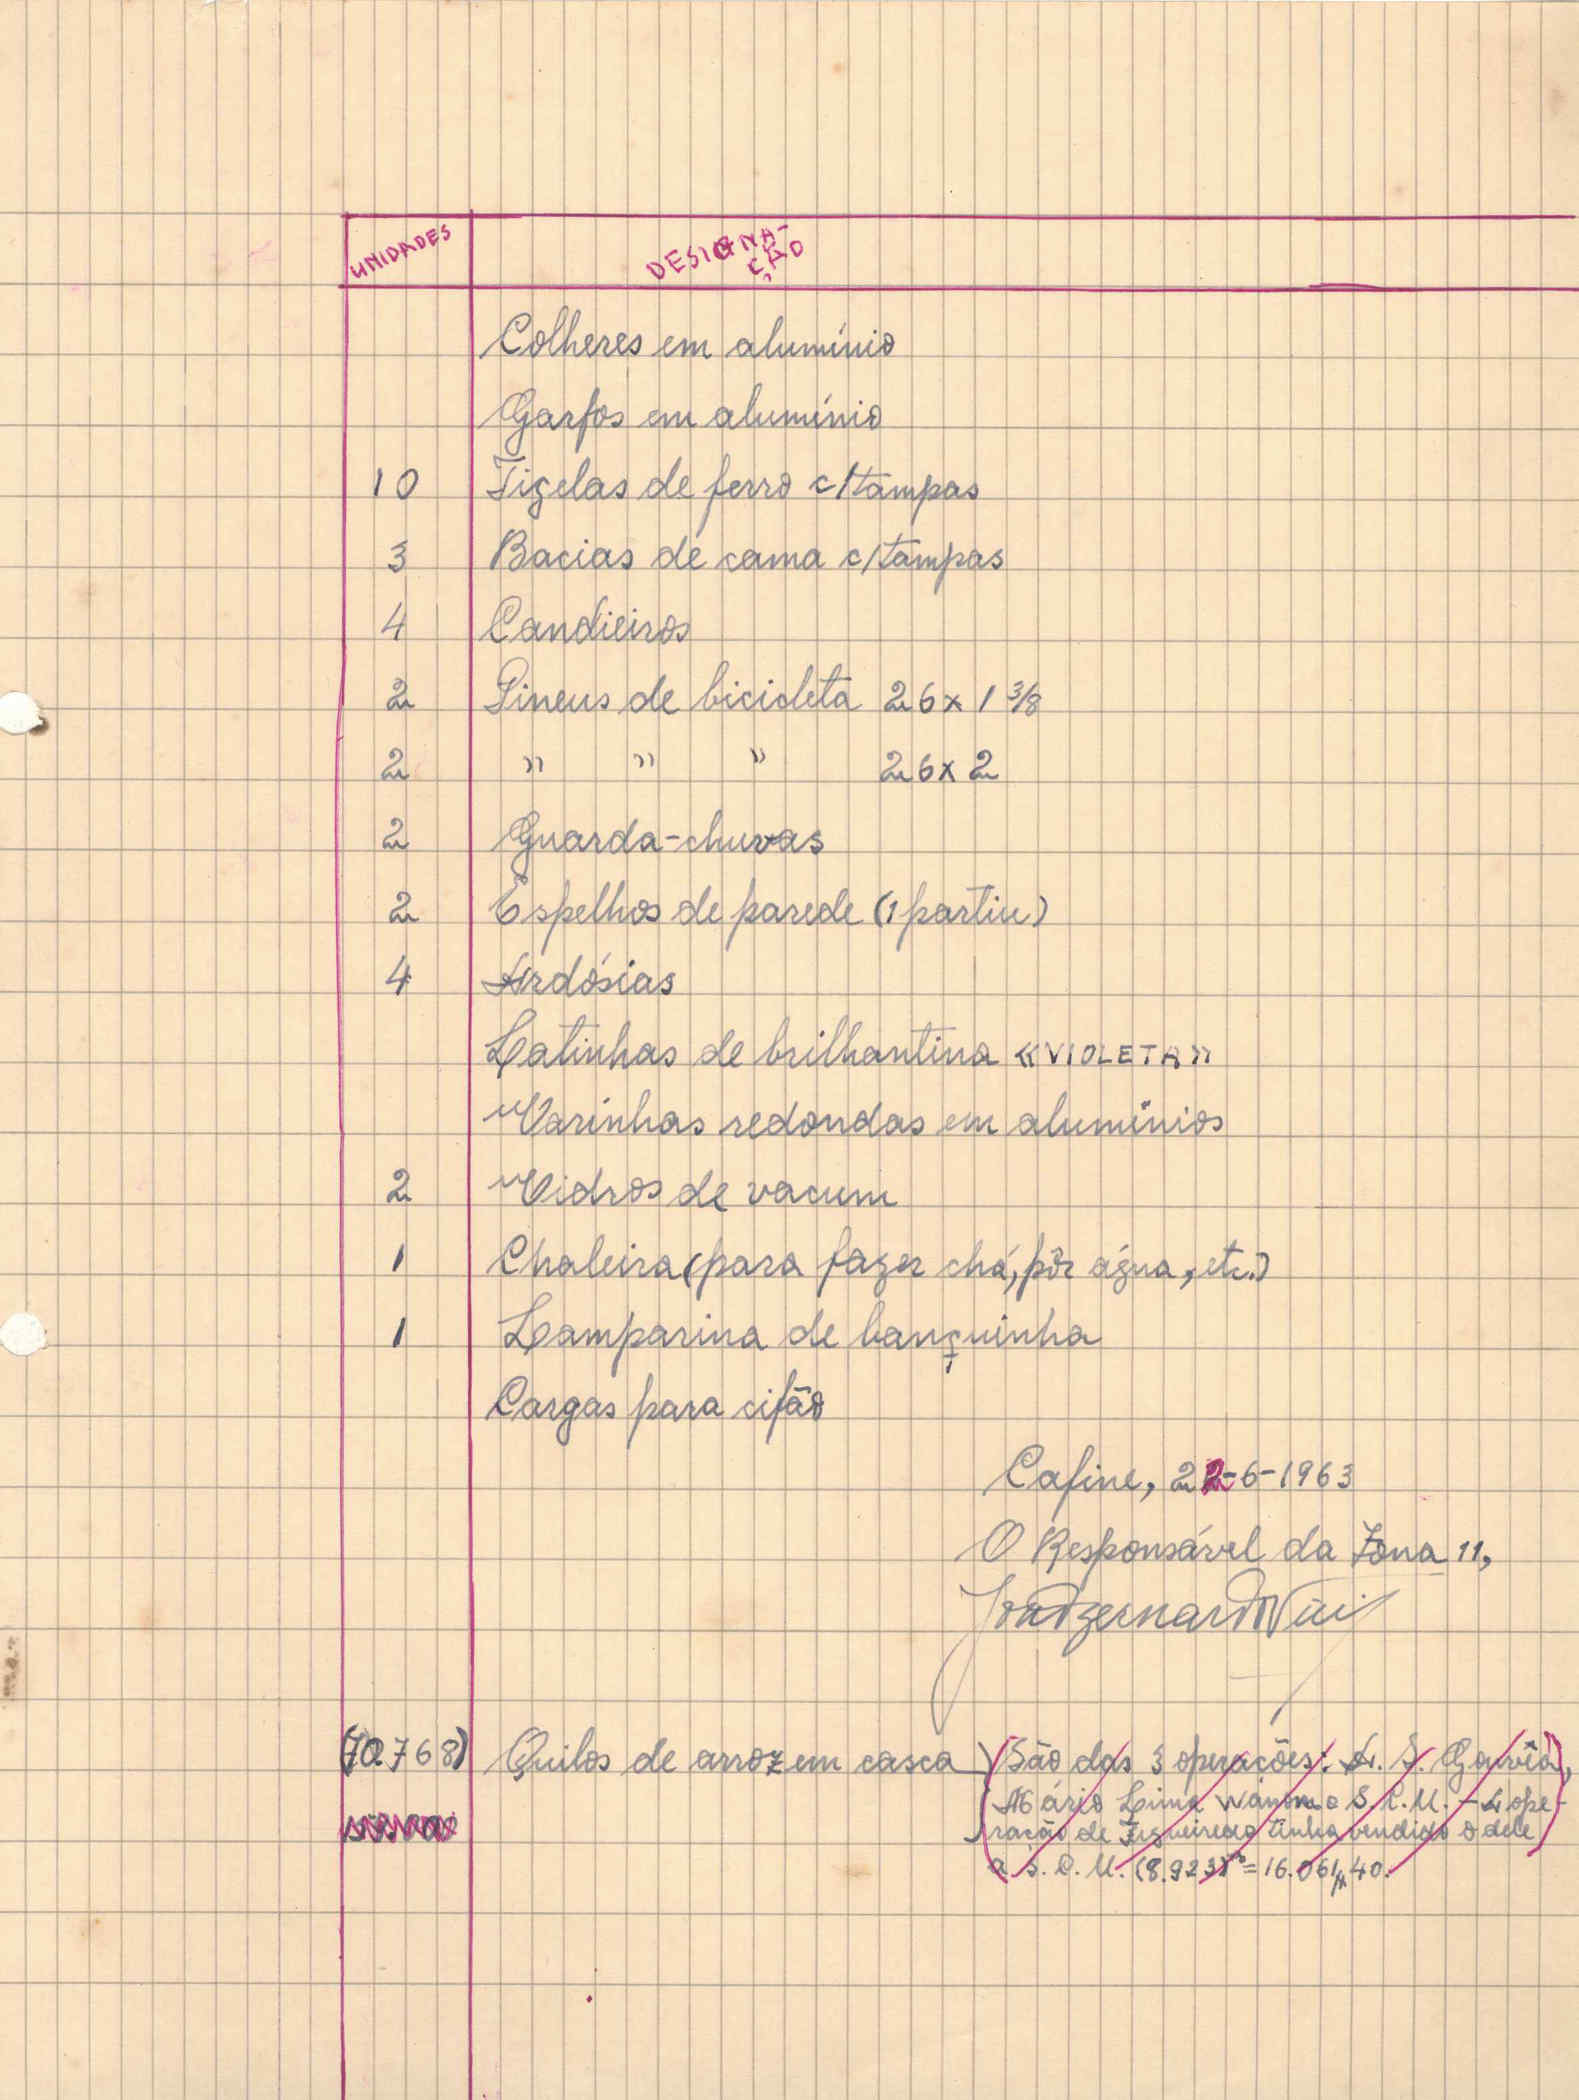 UNIDADES DESIGNA-
ÇÃO
Colheres em alumínio
Garfos em alumínio
10 Tigelas de ferro c/tampas
3 Bacias de cama c/tampas
4 Candieiros
2 Pineus de bicicleta 26x1 3/8
2 " " " 26x2
2 Guarda-chuvas
2 Espelhos de parede (1 partiu)
4 Ardósias
Latinhas de brilhantina «VIOLETA»
Varinhas redondas em alumínios
2 Vidros de vacum
1 Chaleira (para fazer chá, pôr água, etc.)
1 Lamparina de banquinha
Cargas para cifão
Cafine, 22-6-1963
O Responsável da Zona 11,
(70768) Quilos de arroz em casca (São das 3 operações: A. S. Gouvêa,
Mário Lima Wanon e S.C.U. - A ope-
ração de Figueiredo tinha vendido o dele
a S.C.U. (8.923) = 16.061$40.